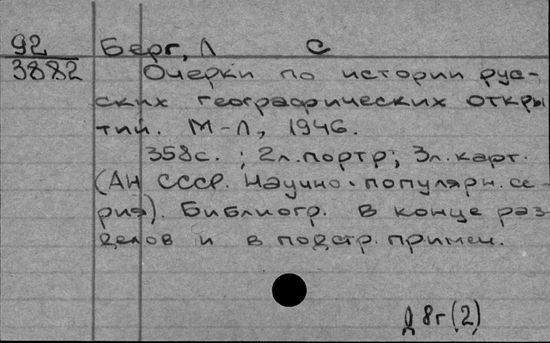 92 Берг, Л С
3882 Очерки по истории рус-
ских географических откры
тий. М-Л, 1946.
358с. ; 2л.портр; 3л.карт.
(АН СССР. Научно-популярн. се-
рия). Библиогр. в конце раз-
делов и в подстр. примеч.
Д 8г(2)